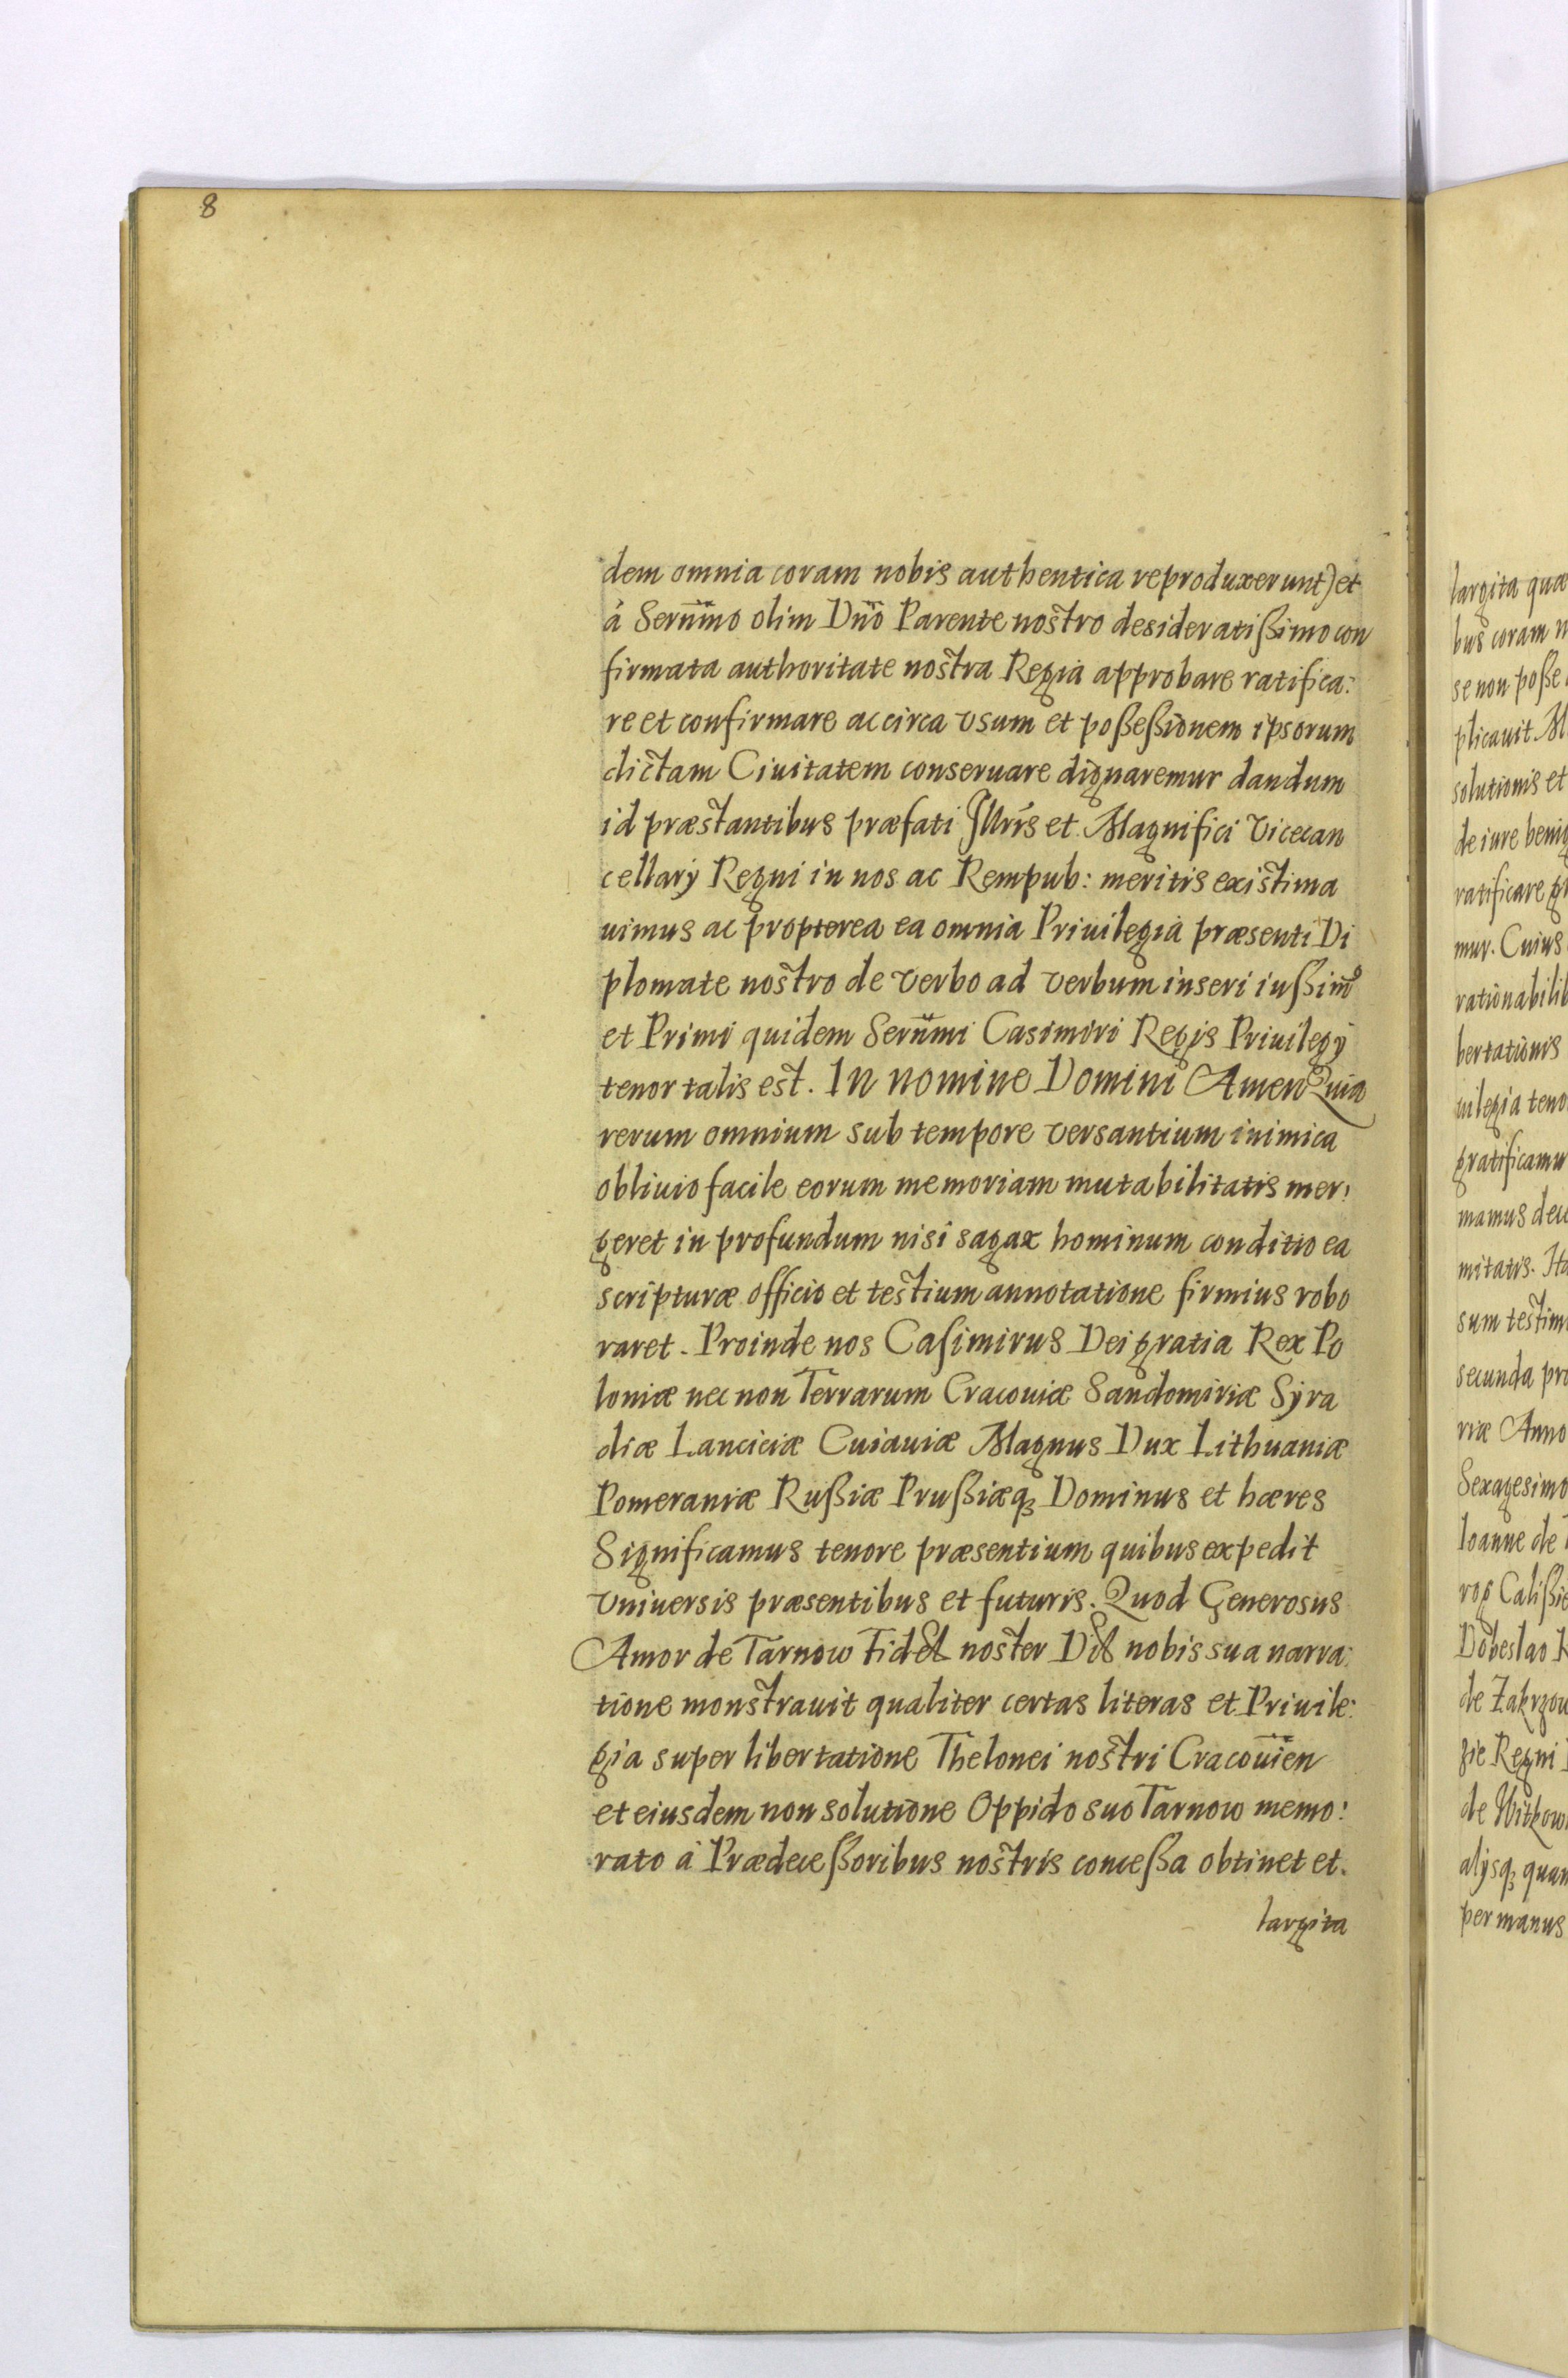 8
dem omnia coram nobis authentica reproduxerunt) et
á Serm̃mo olim Dño Parente nostro desideratißimo con
firmata authoritate nostra Regia approbare ratifica:
re et confirmare ac circa vsum et poßeßionem ipsorum
dictam Ciuitatem conseruare dignaremur dandum
id præstantibus præfati Jllris et Magnifici Vicecan
cellarÿ Regni in nos ac Rempub: meritis existima
uimus ac propterea ea omnia Priuilegia præsenti Di
plomate nostro de verbo ad verbum inseri iußim9
et Primi quidem Serñmi Casimiri Regis Priuilegÿ
tenor talis est. In nomine Domini Amen Quia
rerum omnium sub tempore versantium inimica
obliuio facile eorum memoriam mutabilitatis mer:
geret in profundum nisi sagax hominum conditio ea
scripturæ officio et testium annotatione firmius robo
raret. Proinde nos Casimirus Dei gratia Rex Po
loniæ nec non Terrarum Cracouiæ Sandomiriæ Syra
diæ Lanciciæ Cuiauiæ Magnus Dux Lithuaniæ
Pomeraniæ Rußiæ Prußiæq3 Dominus et hæres
Significamus tenore præsentium quibus expedit
vniuersis præsentibus et futuris. Quod Generosus
Amor de Tarnow Fidel noster Dil nobis sua narra:
tione monstrauit qualiter certas literas et Priuile:
gia super libertatione Thelonei nostri Cracouien
et eiusdem non solutione Oppido suo Tarnow memo:
rato á Prædeceßoribus nostris conceßa obtinet et.
largita
largita quæ
bus coram n
se non poße
plicauit M
solutionis et
de iure benig
ratificare gr
mur. Cuius
rationabilib
bertationis
uilegia teno
gratificamu
mamus dec
mitatis. Ha
sum testim
secunda pro
riæ Anno
Sexagesimo
Ioanne de
Calißie
Dobeslao K
de Zakrzow
gie Regni
de Witkow
alÿsq3 quam
per manus